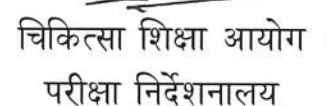 चिकित्सा शिक्षा आयोग
परीक्षा निर्देशनालय